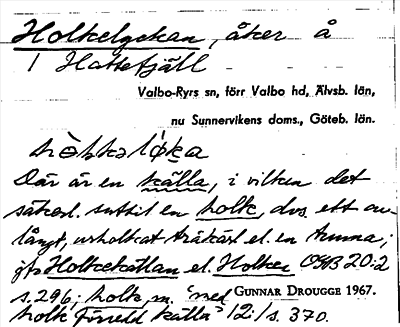 Holkelyckan, åker å
1 Hattefjäll
Valbo-Ryrs sn, förr Valbo hd, Älvsb. län,
nu Sunnervikens doms., Göteb. län.
Där är en källa, i vilken det
säkerl. suttit en holk, dvs. ett av-
långt, urholkat träkärl el. en tunna;
jfr Holkekällan el. Holken OGB 20:2
s. 296; holk m. "med
GUNNAR DROUGGE 1967.
holk försedd källa" 12:1 s. 370.